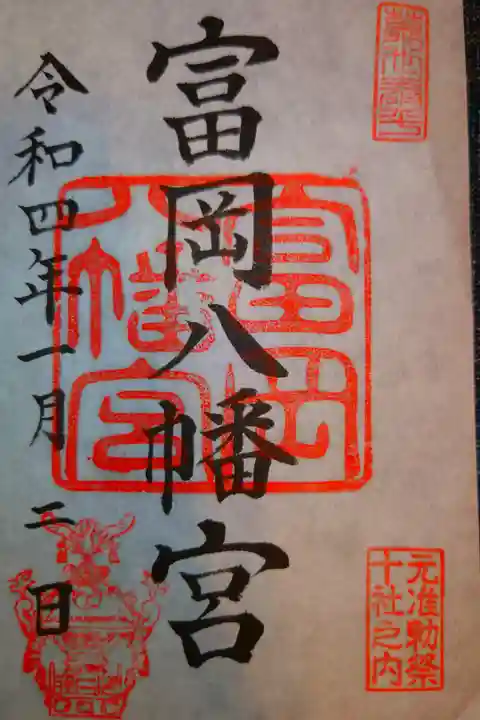 元准勅祭
十社之内
富岡八幡宮
富岡
八幡宮
令和四年一月二日